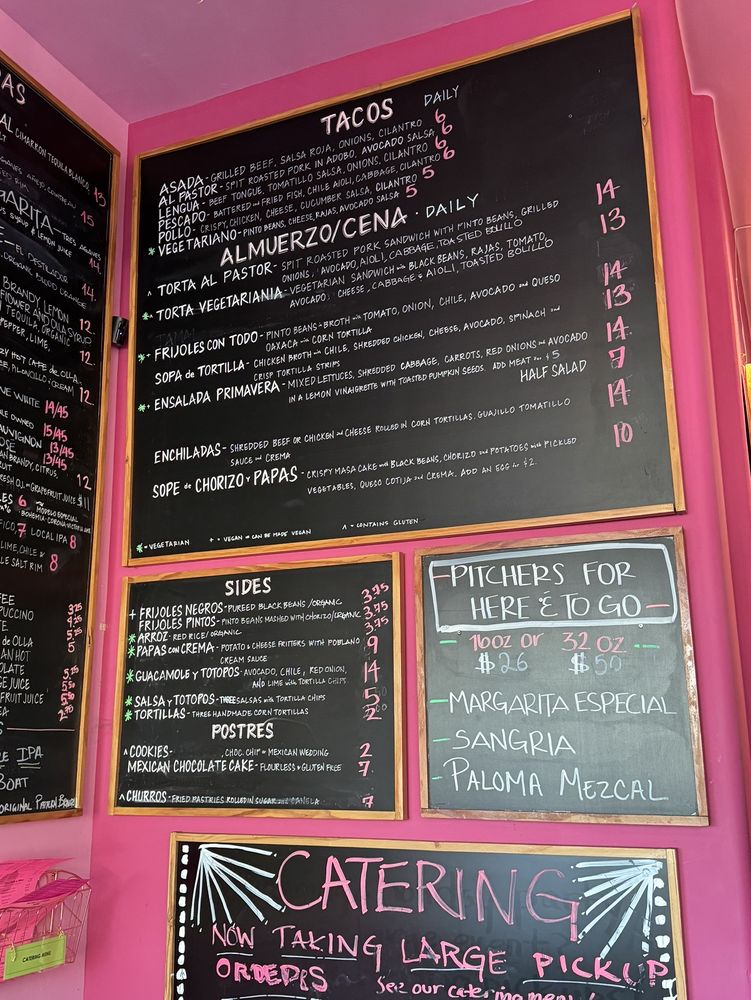 TACOS DAILY
ASADA - GRILLED BEEF, SALSA ROJA, ONIONS, CILANTRO 6
AL PASTOR - SPIT ROASTED PORK IN ADOBO, AVOCADO SALSA 6
LENGUA - BEEF TONGUE, TOMATILLO SALSA, ONIONS, CILANTRO 6
PESCADO - BATTERED AND FRIED FISH, CHILE AIOLI, CABBAGE, CILANTRO 6
POLLO - CRISPY CHICKEN, CHEESE, CUCUMBER SALSA, CILANTRO 5
* VEGETARIANO - PINTO BEANS, CHEESE, RAJAS, AVOCADO SALSA 5
ALMUERZO/CENA · DAILY
^ TORTA AL PASTOR - SPIT ROASTED PORK SANDWICH WITH PINTO BEANS, GRILLED 14
ONIONS, AVOCADO, AIOLI, CABBAGE, TOASTED BOLILLO
* TORTA VEGETARIANIA - VEGETARIAN SANDWICH with BLACK BEANS, RAJAS, TOMATO, 13
AVOCADO, CHEESE, CABBAGE & AIOLI, TOASTED BOLILLO
*+ FRIJOLES CON TODO - PINTO BEANS + BROTH with TOMATO, ONION, CHILE, AVOCADO and QUESO 14
OAXACA with CORN TORTILLA
SOPA de TORTILLA - CHICKEN BROTH with CHILE, SHREDDED CHICKEN, CHEESE, AVOCADO, SPINACH and 13
CRISP TORTILLA STRIPS
*+ ENSALADA PRIMAVERA - MIXED LETTUCES, SHREDDED CABBAGE, CARROTS, RED ONIONS and AVOCADO 14
IN A LEMON VINAIGRETTE WITH TOASTED PUMPKIN SEEDS. ADD MEAT for $5
HALF SALAD 7
ENCHILADAS - SHREDDED BEEF OR CHICKEN and CHEESE ROLLED IN CORN TORTILLAS, GUAJILLO TOMATILLO 14
SAUCE and CREMA
SOPE de CHORIZO y PAPAS - CRISPY MASA CAKE with BLACK BEANS, CHORIZO and POTATOES with PICKLED 10
VEGETABLES, QUESO COTIJA and CREMA. ADD AN EGG for $2.
* = VEGETARIAN + = VEGAN or CAN BE MADE VEGAN ^ = CONTAINS GLUTEN
SIDES
+ FRIJOLES NEGROS - PUREED BLACK BEANS / ORGANIC 3.75
FRIJOLES PINTOS - PINTO BEANS MASHED WITH CHORIZO/ORGANIC 3.75
* ARROZ - RED RICE / ORGANIC 3.75
* PAPAS con CREMA - POTATO & CHEESE FRITTERS WITH POBLANO 9
CREAM SAUCE
* GUACAMOLE y TOTOPOS - AVOCADO, CHILE, RED ONION, 14
AND LIME with TORTILLA CHIPS
* SALSA y TOTOPOS - THREE SALSAS with TORTILLA CHIPS 5
* TORTILLAS - THREE HANDMADE CORN TORTILLAS 2
POSTRES
^ COOKIES - CHOC. CHIP or MEXICAN WEDDING 2
MEXICAN CHOCOLATE CAKE - FLOURLESS & GLUTEN FREE 7
^ CHURROS - FRIED PASTRIES ROLLED IN SUGAR and CANELA 7
PITCHERS FOR
HERE & TO GO
16oz or 32 oz
$26 $50
- MARGARITA ESPECIAL
- SANGRIA
- PALOMA MEZCAL
CATERING
NOW TAKING LARGE PICKUP
ORDERS
See our catering menu
CATERING MENU
AL CIMARRON TEQUILA BLANCO
13
15
TRES AGAVES
SYRUP & LEMON JUICE
14
EL DESTILADOR
ORGANIC BLOOD ORANGE
14
BRANDY, LEMON
12
TEQUILA, ORGANIC
PEPPER, LIME
12
CAFE de OLLA
PILONCILLO & CREAM
12
WHITE 14/45
OWNED 15/45
13/45
13/45
BRANDY, CITRUS,
12
GRAPEFRUIT JUICE $11
6 MODELO ESPECIAL
BOHEMIA · CORONA · VICTORIA
7 LOCAL IPA 8
LIME, CHILE &
SALT RIM 8
3.75
4
5
5
5.75
JUICE
FRUIT JUICE
2.75
IPA
BOAT